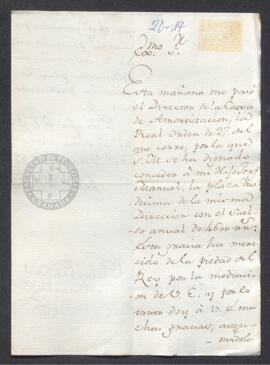 20-17
Exmo Sr.
Esta mañana me pasó
el Director de la Caxa
de Amortizacion, la
Real Orden de 27 del
que corre, por la que
S. M. se ha dignado
conceder á mi hijo Josef
Manuel, la plaza duo
decima de la misma
Direccion con el Suel-
do anual de 4600 rs.
Esta gracia ha mere-
cido de la piedad del
Rey por la mediacion
de V. E. y por lo
tanto doy á V. E. mu-
chas gracias,